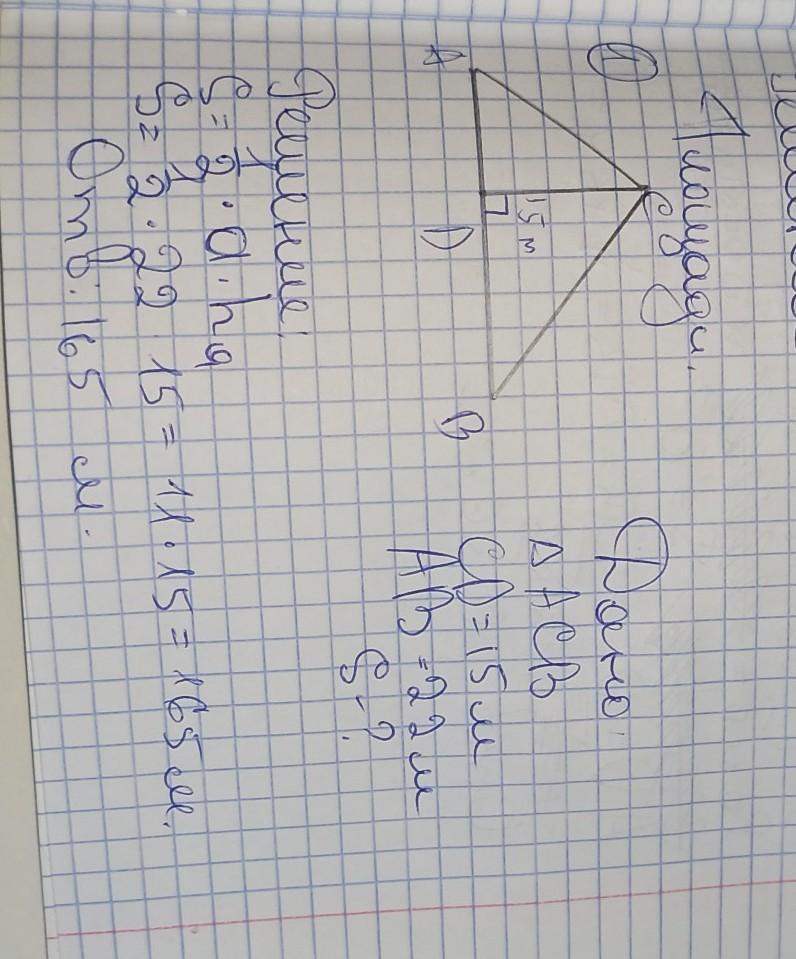 Площади.
①
A
C
15 м
D
B
Дано:
△ ACB
CD = 15 м
AB = 22 м
S - ?
Решение:
S = 1/2 · a · hq
S = 1/2 · 22 15 = 11 · 15 = 165 м.
Отв: 165 м.